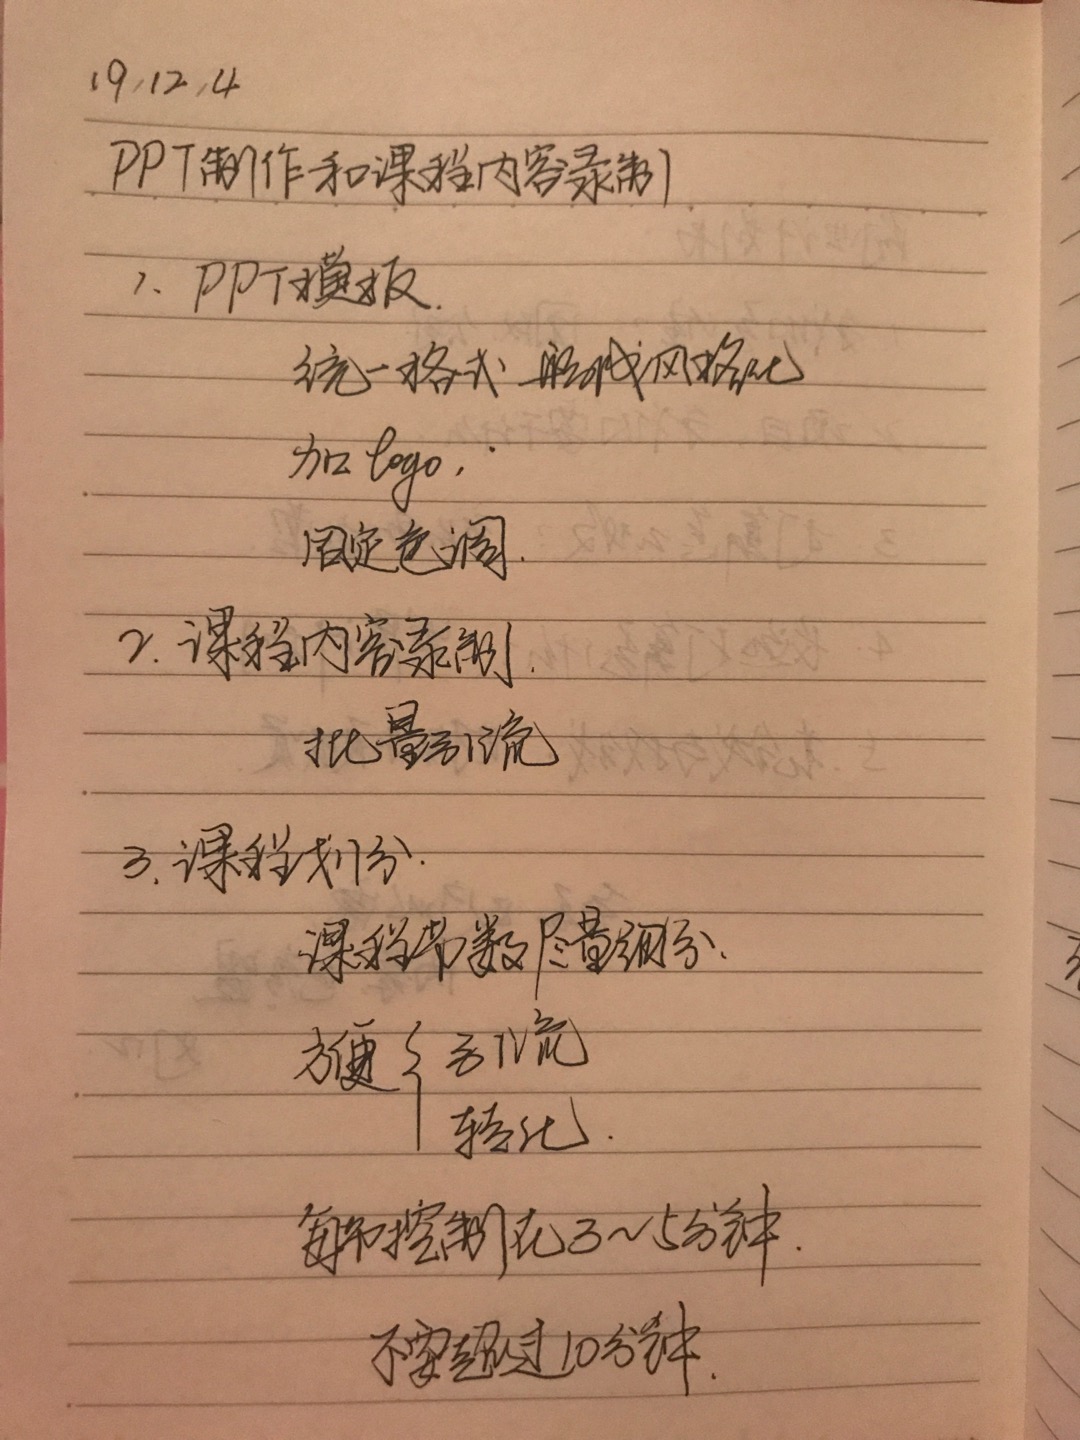 19.12.4
PPT制作和课程内容录制
1. PPT模板.
统一格式 形成风格化
加logo,
固定色调.
2. 课程内容录制.
批量引流
3. 课程划分.
课程节数尽量细分.
方便{引流
转化.
每节控制在3~5分钟.
不要超过10分钟.